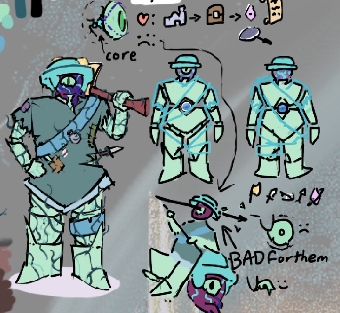 core
BAD For them